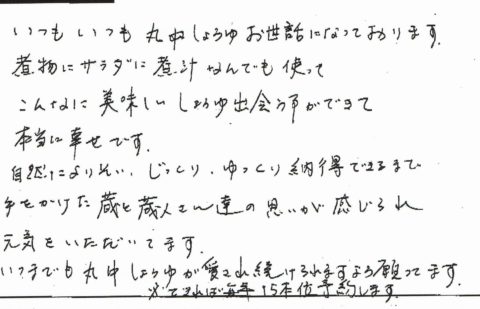 いつも いつも 丸中しょうゆ お世話になっております.
煮物に サラダに 煮汁 なんでも 使って
こんなに 美味しい しょうゆ 出会う事ができて
本当に 幸せです.
自然によりそい、じっくり、ゆっくり 納得できるまで
手をかけた 蔵と 蔵人さん達の 思いが 感じられ
元気を いただいてます.
いつまでも 丸中 しょうゆが 愛され 続けられますよう 願ってます.
できれば 毎年 15本位 予約します.